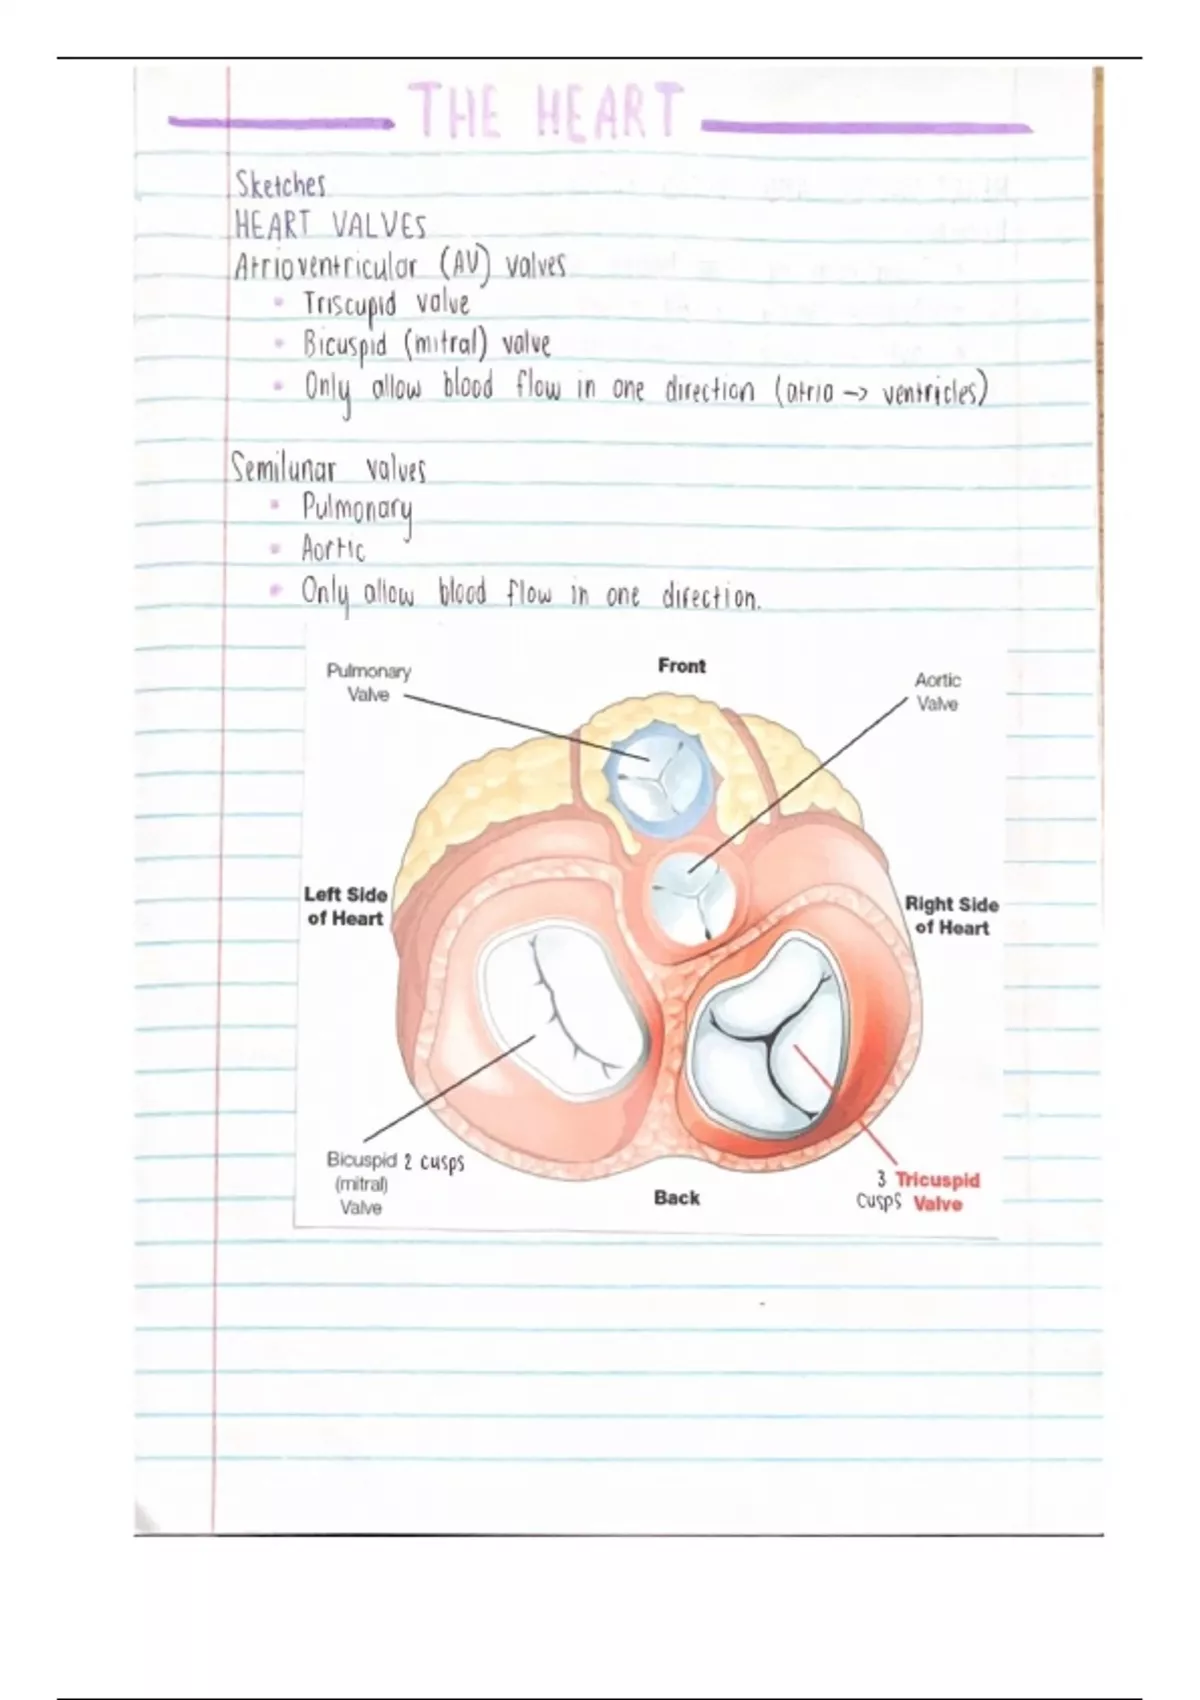 THE HEART
Sketches
HEART VALVES
Atrioventricular (AV) valves
• Triscupid valve
• Bicuspid (mitral) valve
• Only allow blood flow in one direction (atria -> ventricles)
Semilunar valves
• Pulmonary
• Aortic
• Only allow blood flow in one direction.
Pulmonary
Valve
Front
Aortic
Valve
Left Side
of Heart
Right Side
of Heart
Bicuspid 2 cusps
(mitral)
Valve
Back
3 Tricuspid
cusps Valve